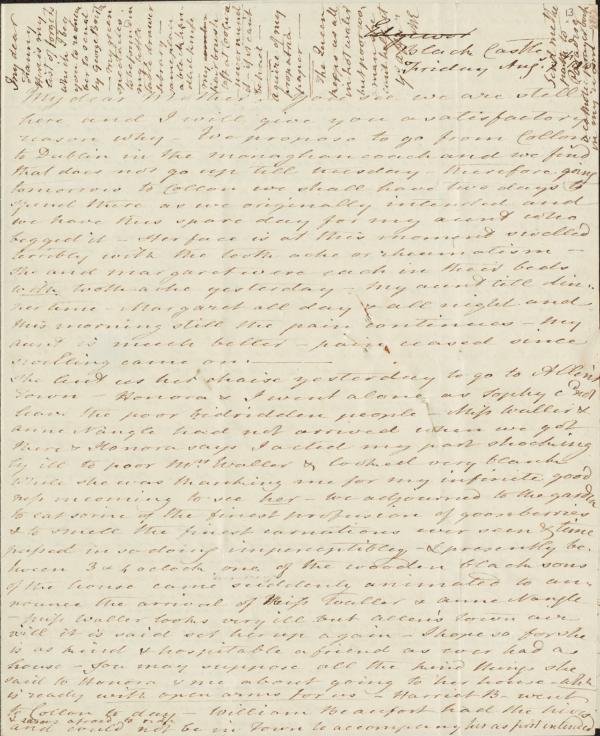 13
Black Castle
Friday Aug
My dear Mother. You see we are still
here and I will give you a satisfactory
reason why - We propose to go from Collon
to Dublin in the monaghan coach and we find
that does not go up till tuesday - therefore going
tomorrow to Collon we shall have two days to
spend there as we originally intended and
we have this spare day for my aunt who
begged it - Her face is at this moment swelled
terribly with the tooth ache or rheumatism -
She and margaret were each in their beds
with tooth ache yesterday - my aunt till din-
ner time - Margaret all day & all night and
this morning still the pain continues - My
aunt is much better - pain ceased since
swelling came on.
She lent us her chaise yesterday to go to Allen's
Town - Honora & I went alone as Sophy cd not
leave the poor bedridden people - Miss Waller &
anne Nangle had not arrived when we got
there & Honora says I acted my part shocking
ly ill to poor Mrs Waller & looked very blank
while she was thanking me for my infinite good
ness in coming to see her - we adjourned to the garden
to eat some of the finest profusion of goosberries
& to smell the finest carnations ever seen & time
passed in so doing imperceptibly - & presently be-
tween 3 & 4 oclock one of the wooden black sons
of the house came suddenly animated to an-
nounce the arrival of Miss Waller & anne Nangle
- Miss Waller looks very ill but allen's town air
will it is said set her up again - I hope so for she
is as kind & hospitable a friend as ever had a
house - You may suppose all the kind things she
said to Honora & me about going to her house -
is ready with open arms for us - Harriet B- went
to Collon to day - William Beaufort had the hives
& was afraid to
and could not be in Town to accompany her as first intended
My dear
list of
which I beg
you to
for
by
in
drawer
The Queen
hopes us all
in hot water
but poor